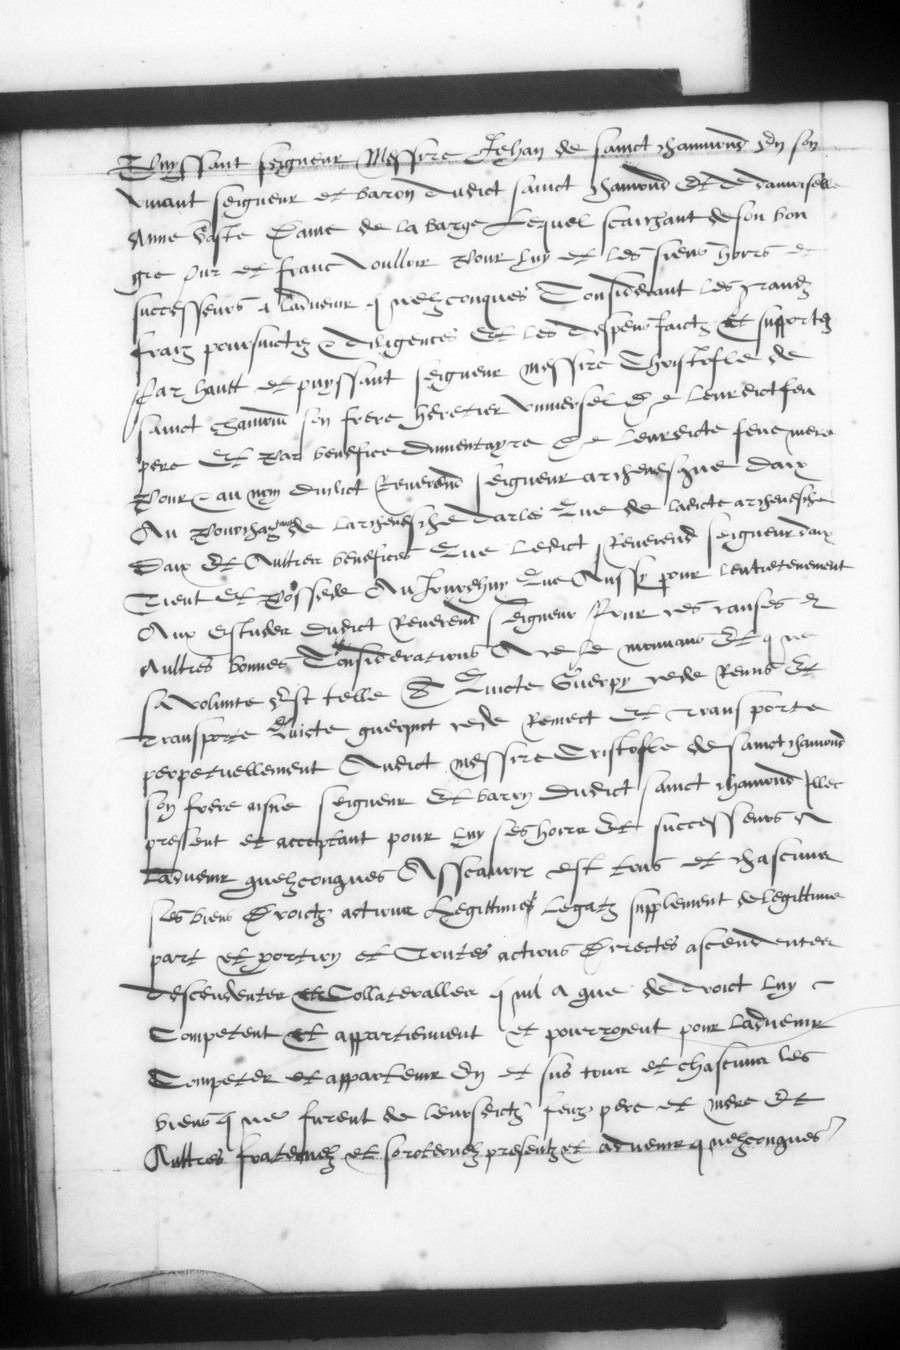 Puyssant seigneur Messire Jehan de sainct chaumond En son
vivant seigneur et baron dudict sainct chamond Et de damoiselle
Anne Dame de la barge Lequel scaichant de son bon
gre pur et franc voulloir Pour luy et les siens hoirs et
successeurs a ladvenir quelzconques Considerant les grandz
fraiz poursuictes & diligences Et les despens faictz Et supportez
Par hault et puyssant seigneur messire Christofle de
sainct chamond son frere heretier universel de leurdict feu
pere Et par benefice dinventayre de leurdicte feue mere
Pour & au nom dudict Reverend seigneur archevesque daix
Au pourchaz de larchevesche darles Que de ladicte archevesche
Daix Et Aultres benefices Que ledict Reverend seigneur daix
Tient Et Possede Aujourdhuy Que Aussy pour lentretenement
Aux estudes dudict Reverend seigneur Pour ces causes et
Aultres bonnes Considerations A ce le mouvans Et que
sa volunte Est telle A Quicte Guerpy cede Remis Et
transporte Quicte guerpict cede Remect et transporte
perpetuellement Audict messire Cristofle de sainct chamond
son frere aisne seigneur Et baron dudict sainct chamond Illec
present et acceptant pour luy ses hoirs Et successeurs A
Ladvenir quelzconques Asscavoir est tous et chascuns
ses biens Droictz actions Legittimes legatz supplement de legittime
part et portion et Toutes actions Directes ascendentes
descendentes Et Collateralles quil a que de droict luy
Competent Et appartiennent et pourroyent pour ladvenir
Competer et appartenir En et sus tous et chascuns les
biens que furent de leursdictz feuz pere et mere Et
Aultres fraternelz et sororernelz presentz et advenir quelzconques